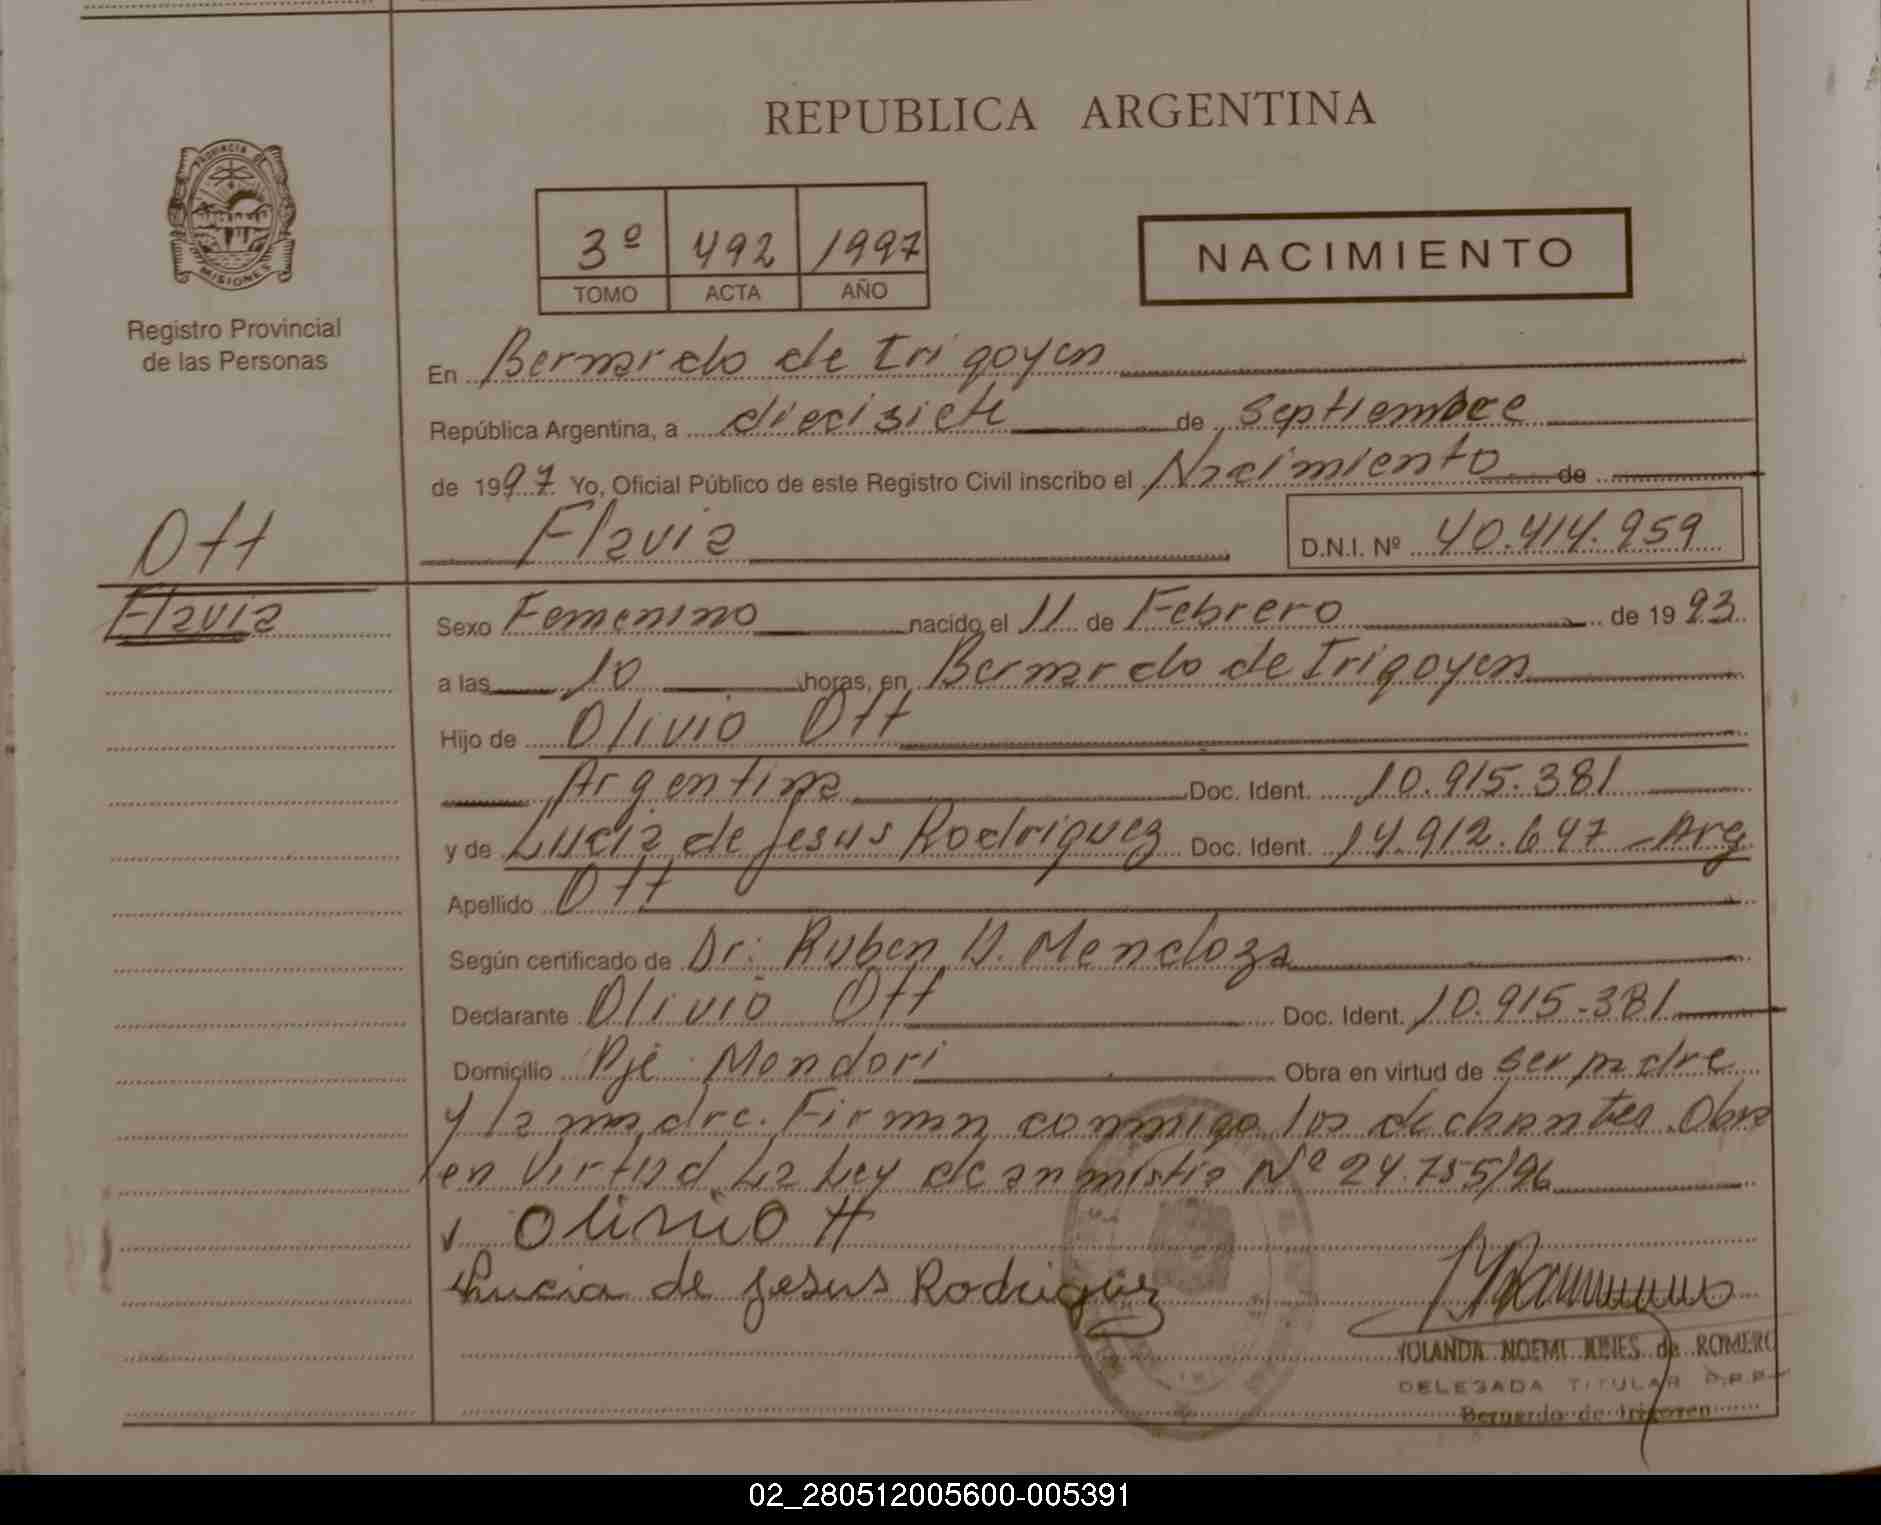 REPUBLICA ARGENTINA
PROVINCIA DE MISIONES
Registro Provincial
de las Personas
3º 492 1997
TOMO ACTA AÑO
NACIMIENTO
En Bernardo de Irigoyen
República Argentina, a diecisiete de Septiembre
de 1997 Yo, Oficial Público de este Registro Civil inscribo el Nacimiento de
Flavia
D.N.I. Nº 40.414.959
Ott
Flavia
Sexo Femenino nacido el 11 de Febrero de 1993
a las 10 horas, en Bernardo de Irigoyen
Hijo de Olivio Ott
Argentina Doc. Ident. 10.915.381
y de Lucia de Jesus Rodriguez Doc. Ident. 14.912.647 - Arg
Apellido Ott
Según certificado de Dr: Ruben Mendoza
Declarante Olivio Ott Doc. Ident. 10.915.381
Domicilio Pje Mondori Obra en virtud de ser padre
y la madre. Firman conmigo los declarantes. Obra
en Virtud La Ley de anmistia Nº 24.755/96
Olivio tt
Lucia de Jesus Rodriguez
YOLANDA NOEMI de ROMERO
DELEGADA TITULAR R.P.P.
Bernardo de Irigoyen
02_280512005600-005391